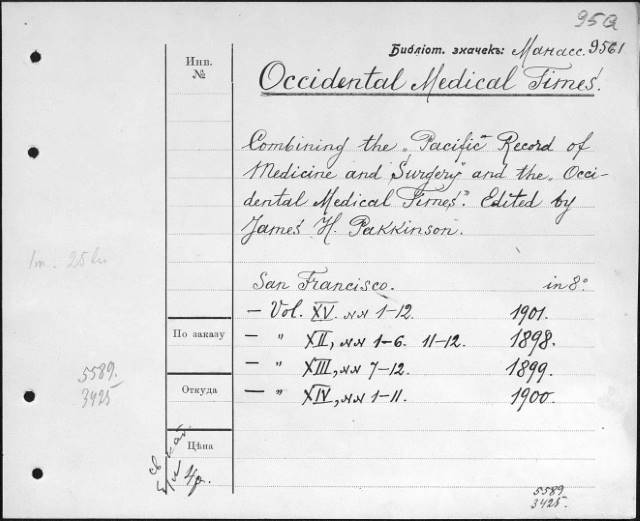 95a
Библіот. значекъ: Манасс. 9561
Инв.
№
Occidental Medical Times.
Combining the „Pacific Record of
Medicine and Surgery" and the „Occi-
dental Medical Times". Edited by
James H. Pakkinson.
San Francisco. in 8°
— Vol. XV. №№ 1-12. 1901.
По заказу
— " XII, №№ 1-6. 11-12. 1898.
— " XIII, №№ 7-12. 1899.
Откуда
— " XIV, №№ 1-11. 1900.
5589.
3425
Цѣна
4р.
5589.
3425.